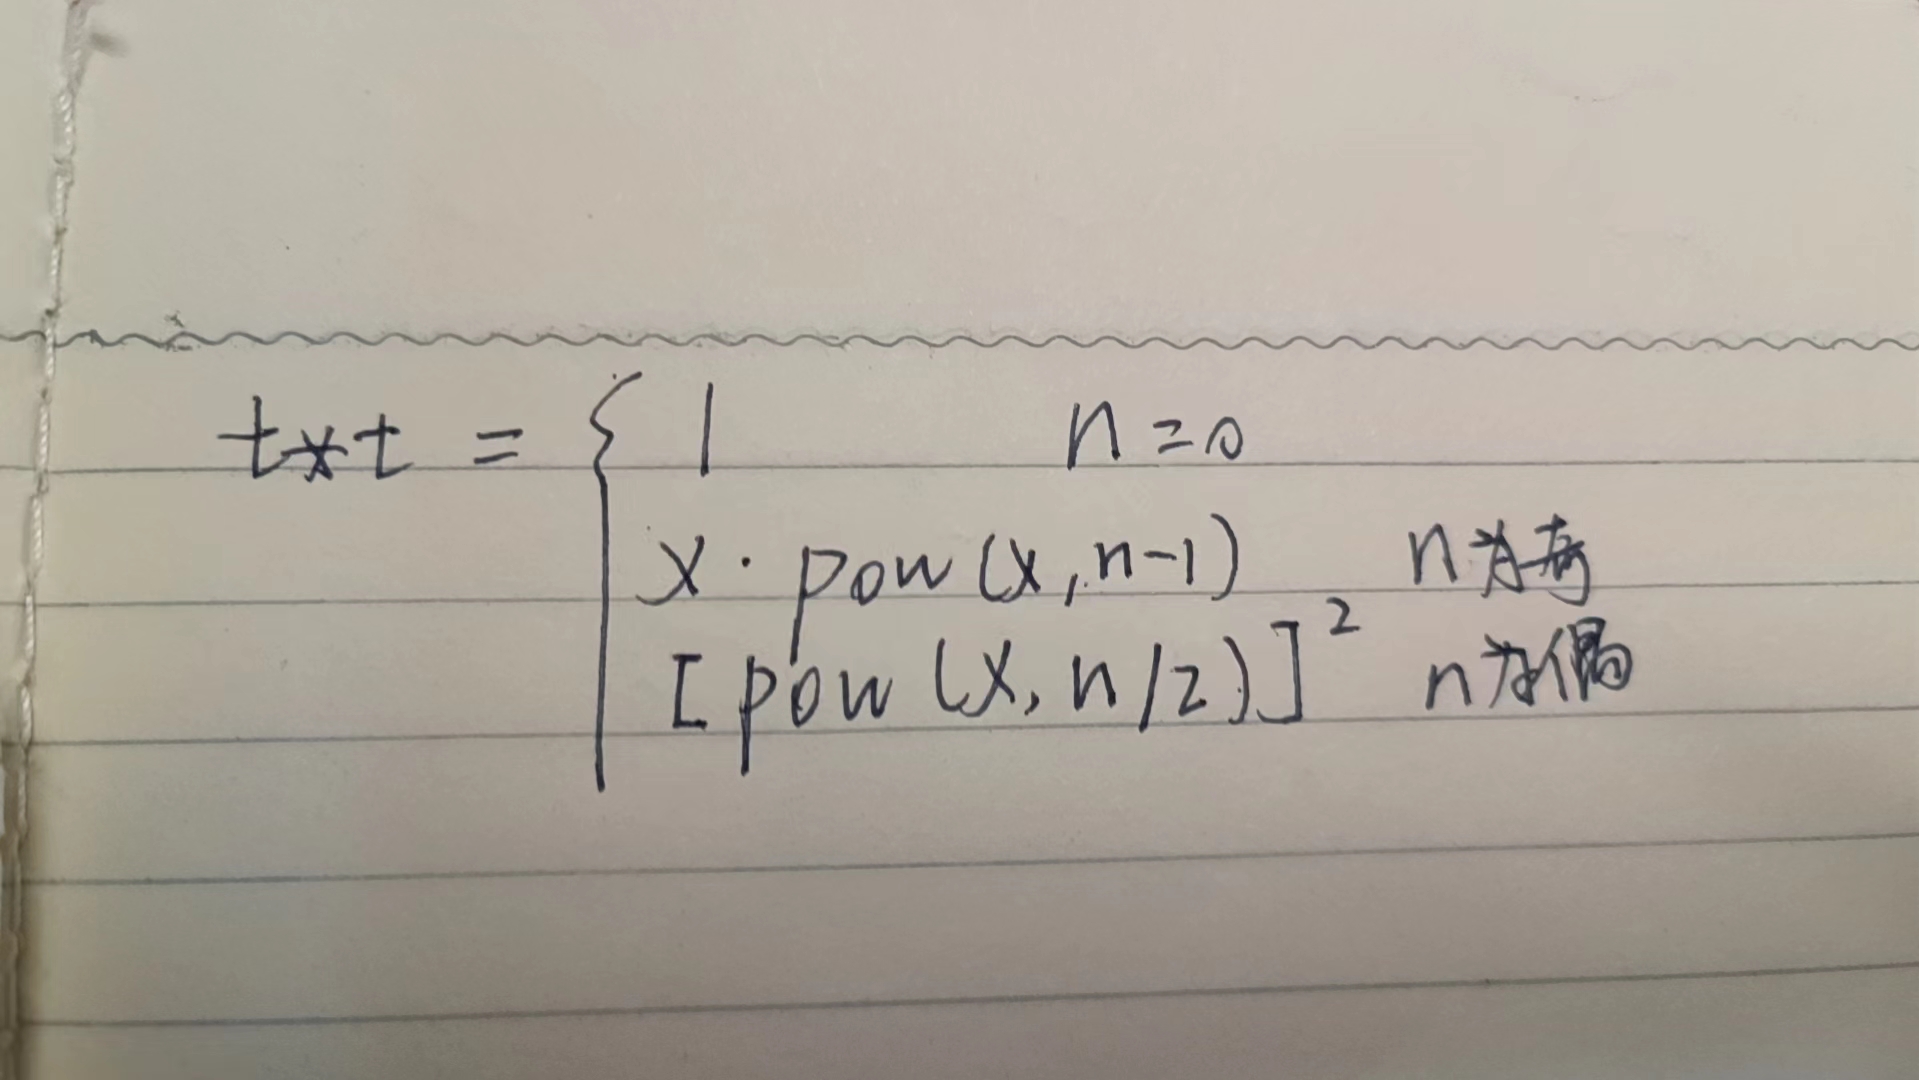 t*t = { 1 n=0
x · pow(x,n-1) n为奇
[pow(x,n/2)]² n为偶